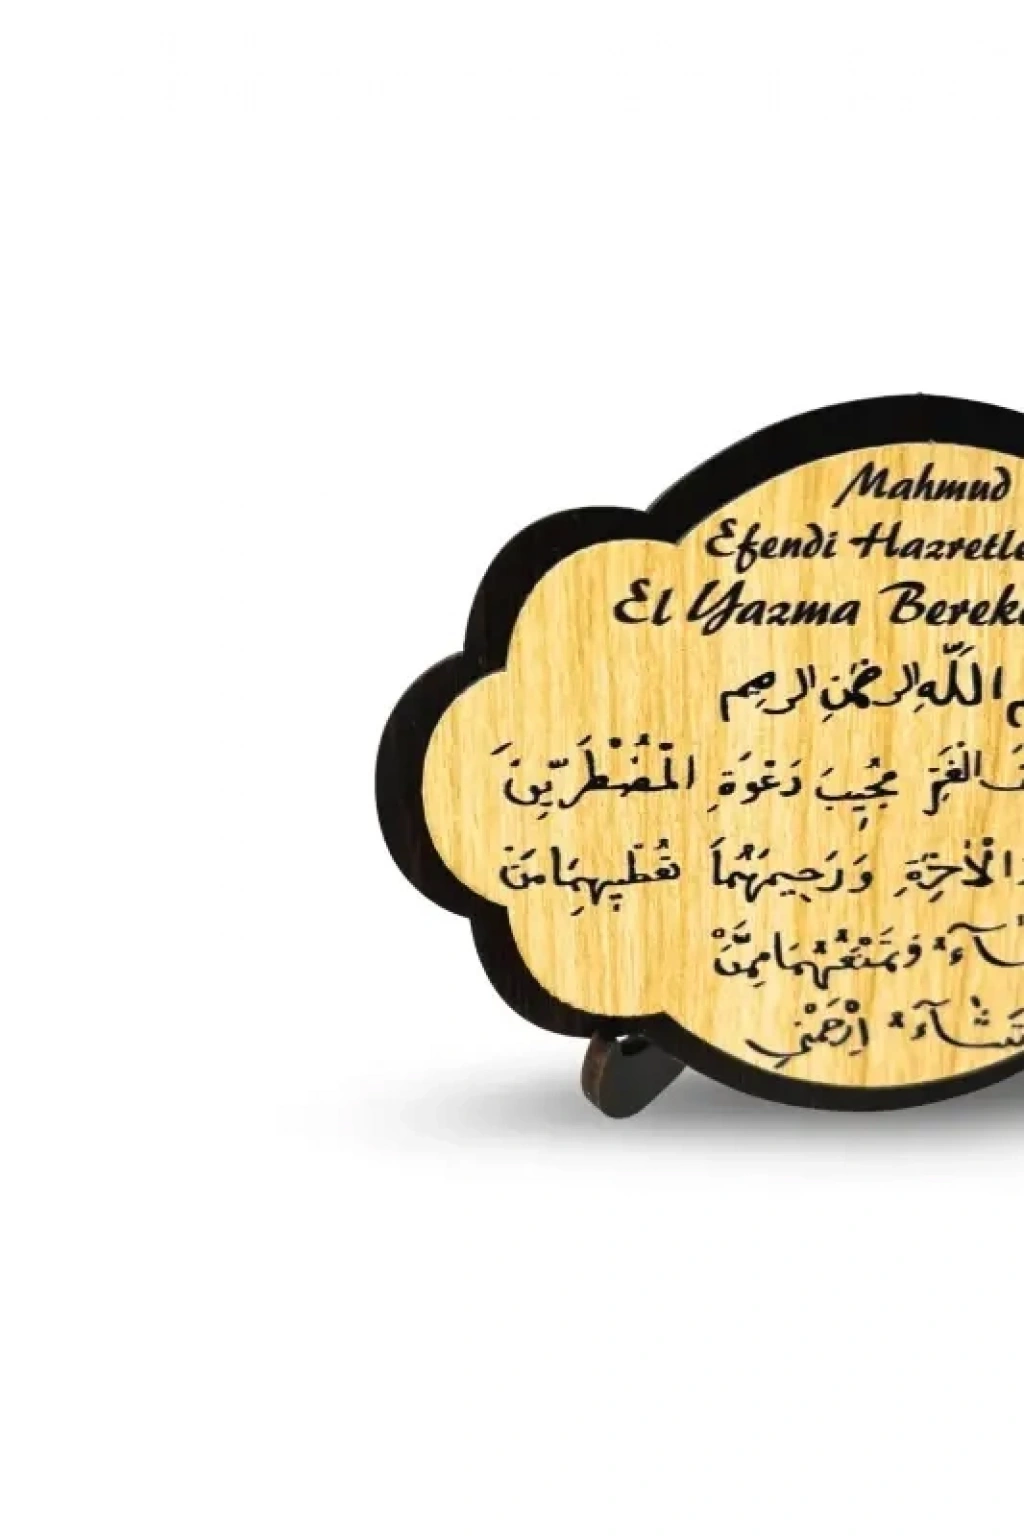 Mahmud
Efendi Hazretle
El Yazma Bereke
اللَّهِ الرحمٰنِ الرحيم
الْغَمِّ مُجِيبَ دَعْوَةِ الْمُضْطَرِّينَ
الْاٰخِرَةِ وَرَحِيمَهُمَا تُعْطِيهِمَا مَنْ
وَتَمْنَعُهُمَا مِمَّنْ
تَشَآءُ اِرْحَمْنِي